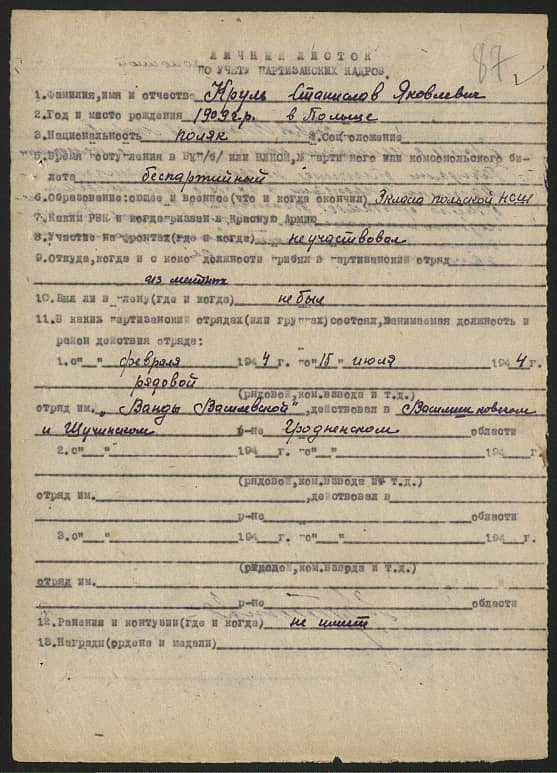 87
ЛИЧНЫЙ ЛИСТОК
ПО УЧЕТУ ПАРТИЗАНСКИХ КАДРОВ.
1.Фамилия,имя и отчество Круль Станислав Яковлевич
2.Год и место рождения 1909 г. в Польше
3.Национальность поляк 4.Соцположение
5.Время поступления в ВКП/б/ или ВЛКСМ,№ партийного или комсомольского би-
лета беспартийный
6.Образование:общее и военное(что и когда окончил) 3 класа польской НСШ
7.Каким РВК и когда призван в Красную Армию
8.Участие на фронтах(где и когда) не участвовал
9.Откуда,когда и с какой должности прибыл в партизанский отряд
из местных
10.Был ли в плену(где и когда) не был
11.В каких партизанских отрядах(или группах)состоял,занимаемая должность и
район действия отряда:
1.с" " февраля 1944 г. по"15" июля 1944 г.
рядовой
(рядовой,ком.взвода и т.д.)
отряд им. "Ванды Василевской",действовал в Василишковском
и Щучинском р-не Гродненской области
2.с" " 194 г. по" " 194 г.
(рядовой,ком.взвода и т.д.)
отряд им. ,действовал в
р-не области
3.с" " 194 г. по" " 194 г.
(рядовой,ком.взвода и т.д.)
отряд им.
р-не области
12.Ранения и контузии(где и когда) не имеет
13.Награды(ордена и медали)